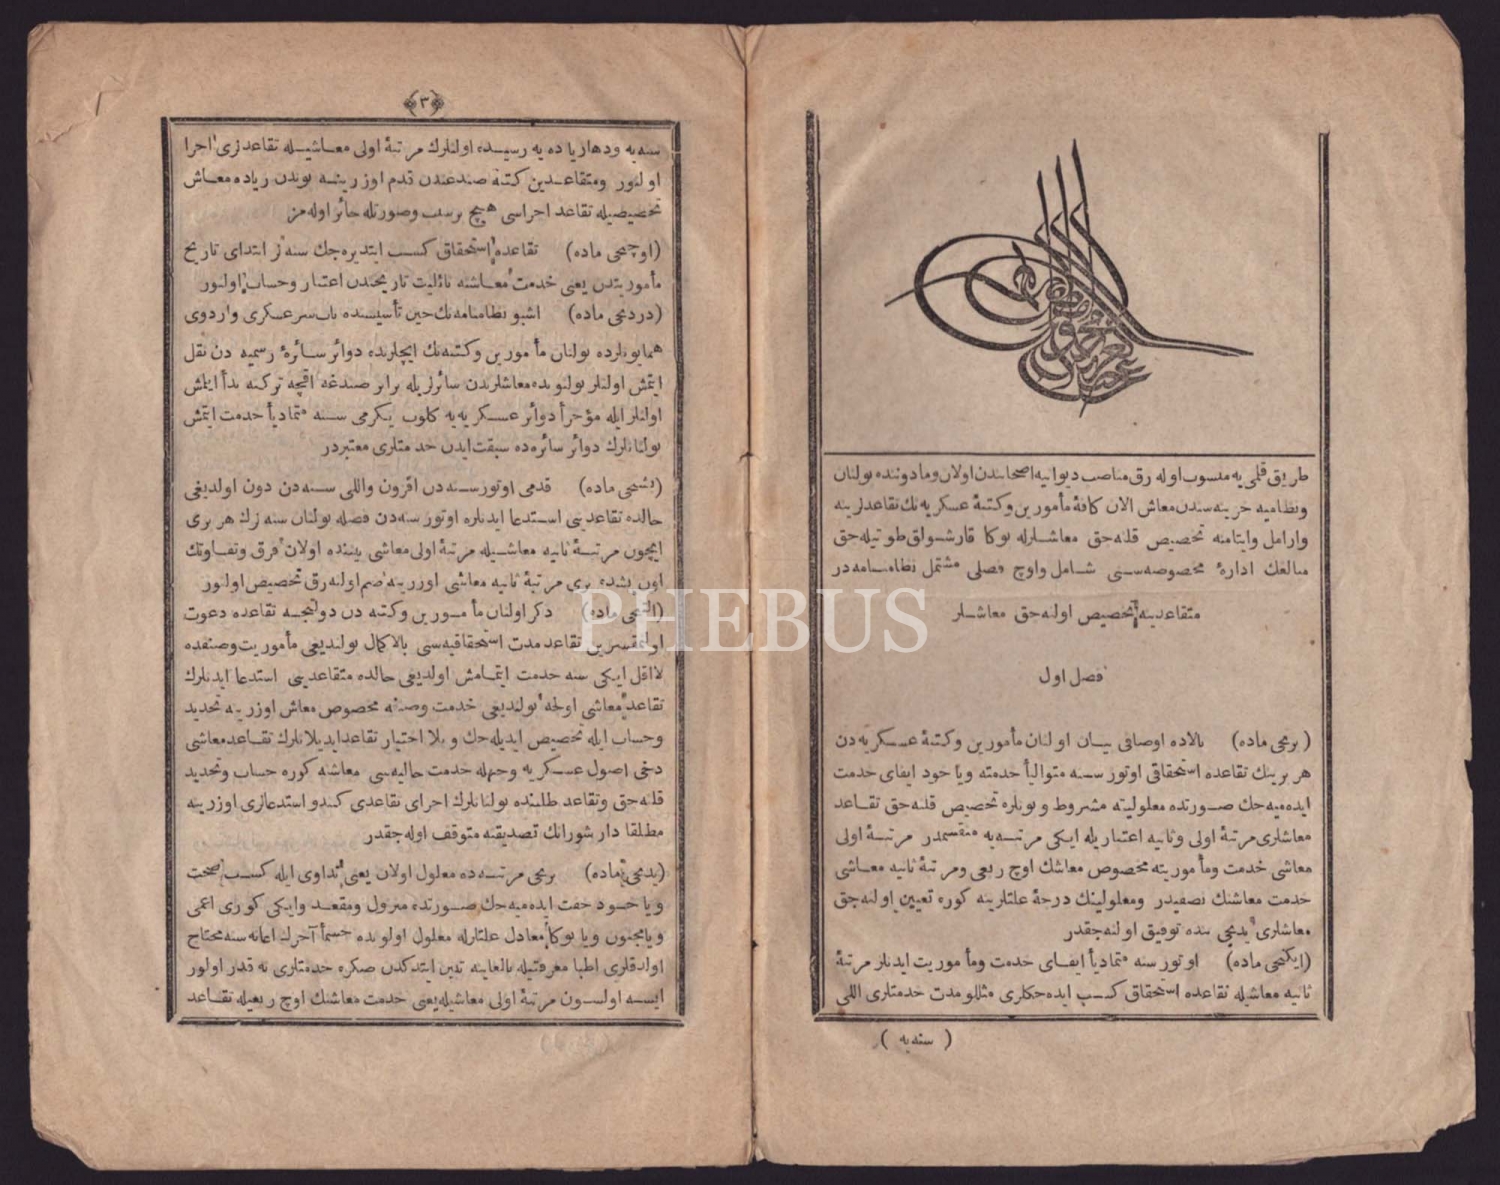 طریق قلمی یه منسوب اوله رق مناصب دیوانیه اصحابندن اولان و مادوننده بولنان
و نظامیه خزینه سندن معاش الان کافهٔ مأمورین و کتبهٔ عسکریه نك تقاعدلرینه
و ارامل و ایتامنه تخصیص قلنه جق معاشلرله بوکا قارشولق طوتیله جق
مبالغك ادارهٔ مخصوصه سنی شامل و اوچ فصلی مشتمل نظامنامه در
متقاعدینه تخصیص اولنه جق معاشلر
فصل اول
(برنجی ماده) بالاده اوصافی بیان اولنان مأمورین و کتبهٔ عسکریه دن
هر برینك تقاعده استحقاقی اوتوز سنه متوالیاً خدمته و یا خود ایفای خدمت
ایده میه جك صورتده معلولیته مشروط و بونلره تخصیص قلنه جق تقاعد
معاشلری مرتبهٔ اولی و ثانیه اعتباریله ایکی مرتبه یه منقسمدر مرتبهٔ اولی
معاشی خدمت و مأموریته مخصوص معاشك اوچ ربعی و مرتبهٔ ثانیه معاشی
خدمت معاشنك نصفیدر و معلولینك درجهٔ علتلرینه کوره تعیین اولنه جق
معاشلری یدنجی بنده توفیق اولنه جقدر
(ایکنجی ماده) اوتوز سنه متمادیاً ایفای خدمت و مأموریت ایدنلر مرتبهٔ
ثانیه معاشیله تقاعده استحقاق کسب ایده جکلری مثللو مدت خدمتلری اللی
( سنه یه )
﴿٣﴾
سنه یه و دها زیاده یه رسیده اولنلرك مرتبهٔ اولی معاشیله تقاعدلری اجرا
اولنور و متقاعدین کتبه صندغندن قدم اوزرینه بوندن زیاده معاش
تخصیصیله تقاعد اجراسی هیچ بر سبب و صورتله جائز اوله مز
(اوچنجی ماده) تقاعده استحقاق کسب ایتدیره جك سنه لر ابتدای تاریخ
مأموریتدن یعنی خدمت معاشنه نائلیت تاریخندن اعتبار و حساب اولنور
(دردنجی ماده) اشبو نظامنامه نك حین تأسیسنده باب سر عسکری و اردوی
همایونلرده بولنان مأمورین و کتبه نك ایچلرنده دوائر سائرهٔ رسمیه دن نقل
ایتمش اولنلر بولنوبده معاشلرندن سائرلریله برابر صندغه اقچه ترکنه بدأ ایتمش
اولنلر ایله مؤخراً دوائر عسکریه یه کلوب یکرمی سنه متمادیاً خدمت ایتمش
بولنانلرك دوائر سائره ده سبقت ایدن خدمتلری معتبردر
(بشنجی ماده) قدمی اوتوز سنه دن افزون و اللی سنه دن دون اولدیغی
حالده تقاعدینی استدعا ایدنلره اوتوز سنه دن فضله بولنان سنه لرك هر بری
ایچون مرتبهٔ ثانیه معاشیله مرتبهٔ اولی معاشی بیننده اولان فرق و تفاوتك
اون بشده بری مرتبهٔ ثانیه معاشی اوزرینه ضم اولنه رق تخصیص اولنور
PHEBUS
(التنجی ماده) ذکر اولنان مأمورین و کتبه دن دولتجه تقاعده دعوت
اولنمقسزین تقاعد مدت استحقاقیه سی بالاکمال بولندیغی مأموریت و صنفده
لااقل ایکی سنه خدمت ایتمامش اولدیغی حالده متقاعدینی استدعا ایدنلرك
تقاعد معاشی اولجه بولندیغی خدمت و صنفه مخصوص معاش اوزرینه تحدید
و حساب ایله تخصیص ایدیله جك و بلا اختیار تقاعد ایدیلانلرك تقاعد معاشی
دخی اصول عسکریه وجهله خدمت حالیه سی معاشنه کوره حساب و تحدید
قلنه جق و تقاعد طلبنده بولنانلرك اجرای تقاعدی کندو استدعالری اوزرینه
مطلقا دار شورانك تصدیقنه متوقف اوله جقدر
(یدنجی ماده) برنجی مرتبه ده معلول اولان یعنی تداوی ایله کسب صحت
و یا خود خفت ایده میه جك صورتده منزول و مقعد و ایکی کوزی اعمی
و یا مجنون و یا بوکا معادل علتلرله معلول اولوبده جسماً آخرك اعانه سنه محتاج
اولدقلری اطبا معرفتیله بالمعاینه تبین ایتدکدن صکره خدمتلری نه قدر اولور
ایسه اولسون مرتبهٔ اولی معاشیله یعنی خدمت معاشنك اوچ ربعیله تقاعد